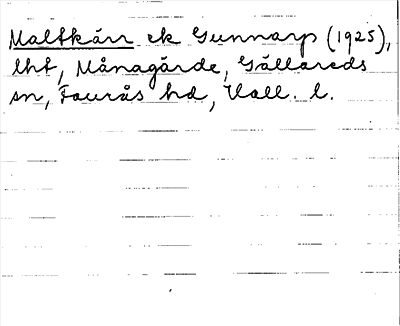 Maltkärr ek Gunnarp (1925),
lht, Månagärde, Gällareds
sn, Faurås hd, Hall. l.